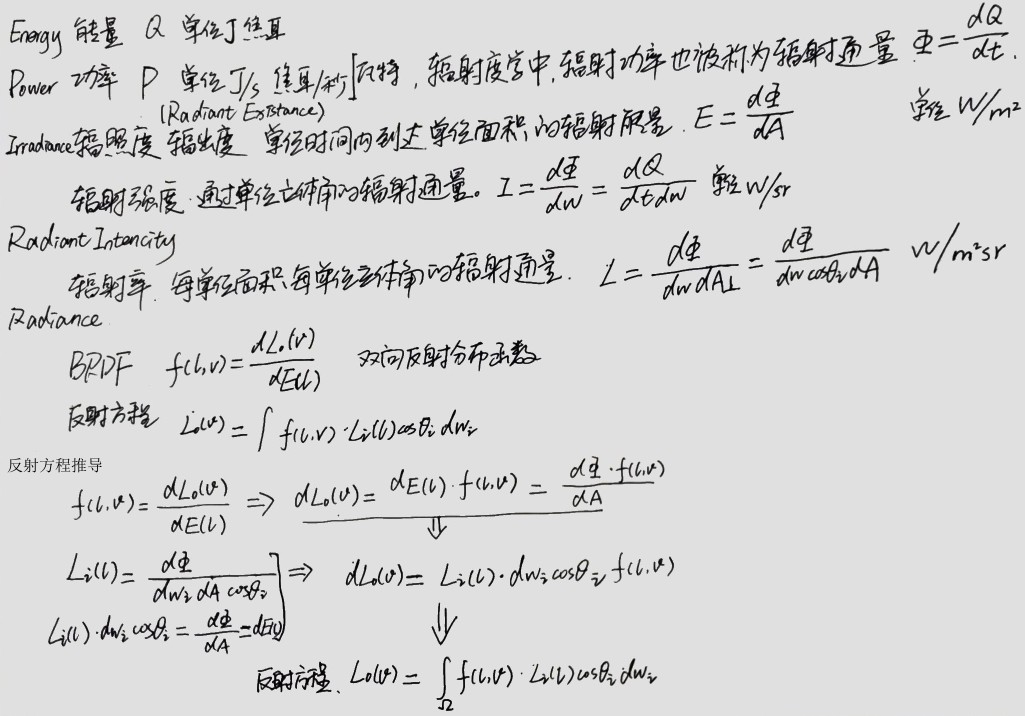 Energy 能量 Q 单位J 焦耳
Power 功率 P 单位 J/s 焦耳/秒 瓦特, 辐射度学中, 辐射功率也被称为辐射通量 Φ = dQ/dt.
(Radiant Existance)
Irradiance 辐照度 辐出度 单位时间内到达单位面积的辐射能量. E = dΦ/dA 单位 W/m²
辐射强度. 通过单位立体角的辐射通量。 I = dΦ/dw = dQ/dtdw 单位 W/sr
Radiant Intencity
辐射率. 每单位面积、每单位立体角的辐射通量. L = dΦ/dwdA⊥ = dΦ/dwcosθᵢdA W/m²sr
Radiance
BRDF f(l,v) = dL₀(v)/dE(l) 双向反射分布函数
反射方程 L₀(v) = ∫ f(l,v)·Lᵢ(l)cosθᵢ dwᵢ
反射方程推导
f(l,v) = dL₀(v)/dE(l) ⇒ dL₀(v) = dE(l)·f(l,v) = dΦ·f(l,v)/dA
⇓
Lᵢ(l) = dΦ/dwᵢ dA cosθᵢ ⇒ dL₀(v) = Lᵢ(l)·dwᵢcosθᵢ f(l,v)
Lᵢ(l)·dwᵢ cosθᵢ = dΦ/dA = dE(l)
⇓
反射方程. L₀(v) = ∫Ω f(l,v)·Lᵢ(l)cosθᵢ dwᵢ